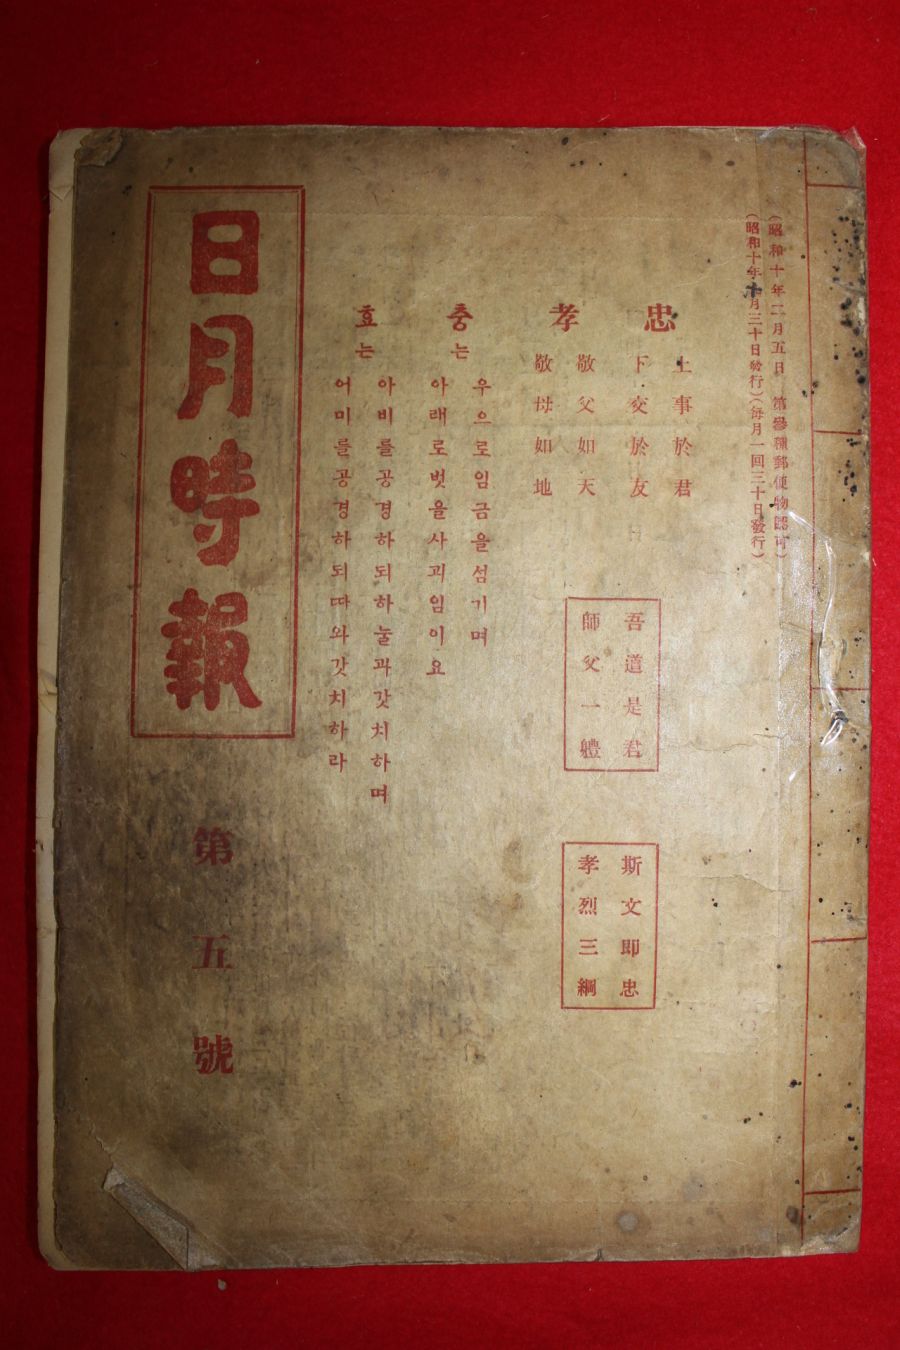 (昭和十年二月五日 第參種郵便物認可)
(昭和十年 月三十日發行)(每月一回三十日發行)
忠
上事於君
下交於友
孝
敬父如天
敬母如地
충는
우으로임금을섬기며
아래로벗을사괴임이요
효는
아비를공경하되하눌과갓치하며
어미를공경하되따와갓치하라
吾道是君
師父一軆
斯文即忠
孝烈三綱
日月時報
第五號